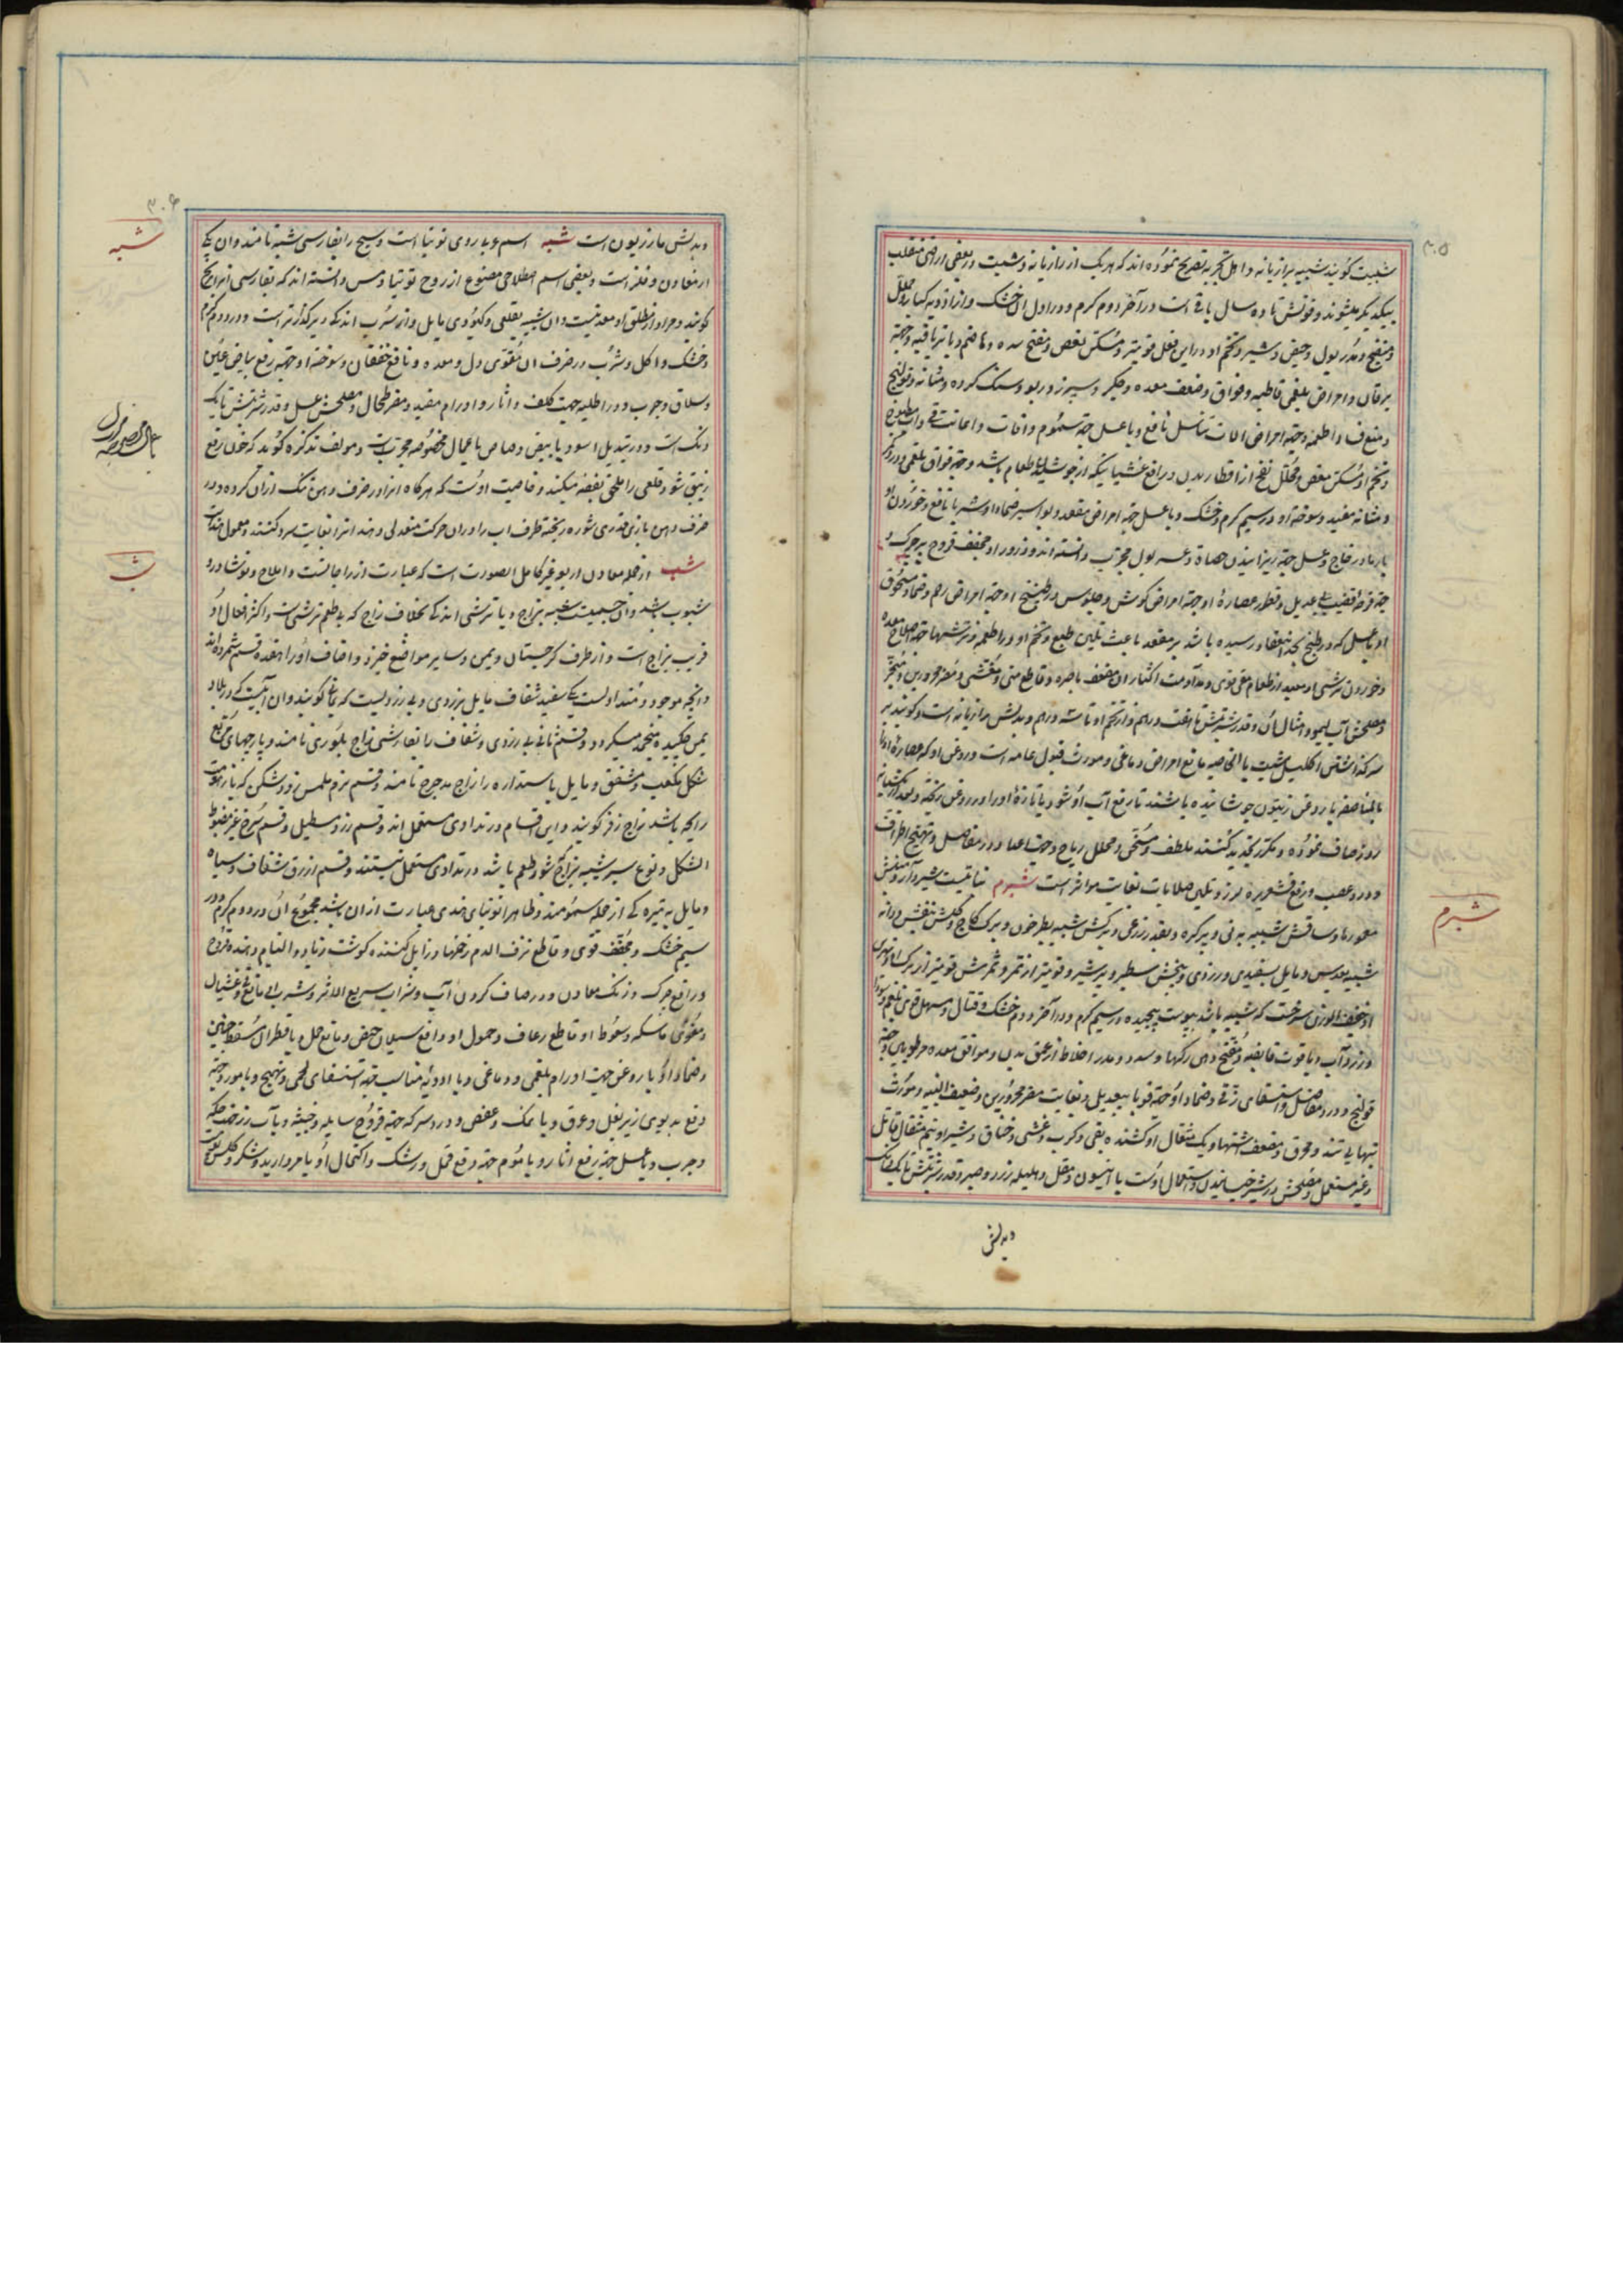 ۳۰۵
شبیت گویند شبیه برازیانه و اهل تجربه تصریح نموده‌اند که هر یک از رازیانه و شبت در بعضی اراضی منقلب
بیکدیگر میشوند و قوتش تا ده سال باقی است در آخر دوم گرم و در اول آن خشک و
و منضج و مدر بول و حیض و شیر و تخم او در این فعل قویتر و مسکن مغص و مفتح سده و هاضم و با تریاقیه و جهة
یرقان و امراض بلغمی قاطبه و فواق و ضعف معده و جگر و سپرز و ربو و سنگ گرده و مثانه و قولنج
و جهة امراض آلات تناسل نافع و با عسل جهة سموم و اعانت قی و آب مطبوخ
و تخم او مسکن مغص و محلل نفخ از اقطار بدن و رافع غشیانیکه از طعام باشد و جهة فواق بلغمی و درد گرده
و مثانه مفید و سوخته او در سیم گرم و خشک و با عسل جهة امراض مقعد و بواسیر ضمادا و شربا نافع و خوردن او
با عسل جهة ریزانیدن حصاة و عسر بول مجرب دانسته‌اند و ذرور او مجفف قروح
جهة قرحه قضیب بی عدیل و قطور عصاره او جهة امراض گوش و جلوس در طبیخ او جهة امراض رحم و ضماد مسحوق
او با عسل که در طبخ بحد انعقاد رسیده باشد بر مقعد باعث تلیین طبع و تخم او در اطعمه و ترشیها جهة اصلاح معده
و خوردن ترشی او بعد از طعام مقی قوی و مداومت اکثار آن مضعف باصره و قاطع منی و مغشی و مضر محرورین و مبخر
و مصلحش آب لیمو و امثال آن و قدر شربتش تا هفت درهم و از تخم او تا سه درهم و بدلش رازیانه است و گویند بر
سر گذاشتن اکلیل شبت بالخاصیه مانع امراض دماغی و مورث قبول عامه است و روغن او که عصاره او را
بالمناصفه با روغن زیتون جوشانیده باشند تا رفع آب او شود یا تازهٔ او را در روغن
روز صاف نموده و مکرر تجدید کنند ملطف و مسخن و محلل ریاح و جهة اعیا و درد مفاصل و تهیج اطراف
و درد عصب و رفع قشعریره و لرز و تلیین صلابات بغایت مؤثر است شبرم نباتیست شیردار و منبتش
معموره‌ها و ساقش شبیه به نی و پر گره و بقدر ذرعی و برگش شبیه بطرخون و برگ کاج و گلش بنفش و دانه
شبیه بعدس و مایل بسفیدی و زردی و بیخش سطبر و پر شیر و قویتر از ثمر و ثمرش قویتر از برگ او
خفیف الوزن سرخست که شبیه باشد بپوست پیچیده در سیم گرم و در آخر دوم خشک و قتال و مسهل قوی بلغم و سودا
و زرد آب و با قوت قابضه و مفتح دهن رگها و سدد و مدر اخلاط از عمق بدن و موافق معده مرطوبین و جهة
قولنج و درد مفاصل و استسقای زقی و ضماد او جهة قوبا بیعدیل و بغایت مضر محرورین و ضعیف البنیه و مورث
تبهای تند و محرق و مضعف اشتها و یک مثقال او کشنده بقی و کرب و غشی و خناق و شیر او نیم مثقال قاتل
و غیر مستعمل و مصلحش در شیر خیسانیدن و استعمال اوست با انیسون و مقل و هلیله زرد و صبر و قدر شربتش تا یک دانک
شبرم
وبدلش
۳۰۶
وبدلش مازریون است شبه اسم عربی روی توتیا است و سبج را بفارسی شبه نامند و آن یکی
از معادن و فلز است و بعضی اسم اصطلاحی مصنوع از روح توتیا و مس دانسته‌اند که بفارسی برنج
گویند و مراد از مطلق او معدنیست و آن شبیه بقلعی و کبودی مایل و از سرب اندکی دیرگدازتر است و در دوم گرم
و خشک و اکل و شرب در ظرف آن مقوی دل و معده و نافع خفقان و سوخته او جهة رفع بیاض عین
و سلاق و جرب و در اطلیه جهت کلف و آثار و اورام مفید و مضر طحال و مصلحش عسل و قدر شربتش تا یک
دانک است و در تبدیل اسود بابیض و رصاص باعمال مخصوصه مجربست و مؤلف تذکره گوید که چون رفع
زیبق شود قلعی را ملحق بفضه میکند و خاصیت اوست که هرگاه
ظرف دهن باریک قدری شوره ریخته ظرف آب را در آن حرکت معتدلی دهند آنرا بغایت سرد کند و معمول هندست
شب از جمله معادن اربعه غیر کامل الصورت است که عبارت از زاجاتست و املاح و نوشادر و
شبوب باشد و آن جسمیست شبیه بزاج و با ترشی اندکی بخلاف زاج که بی طعم ترشی است و اکثر افعال او
قریب بزاج است و از طرف گرجستان و یمن و سایر مواضع خیزد و اصناف او را هفده قسم شمرده‌اند
و آنچه موجود و متداولست یکی سفید شفاف مایل بزردی و بی زردیست که یمانی گویند و آن آبیست که در بلاد
یمن چکیده منجمد میگردد و قسم ثانی بی زردی و شفاف را بفارسی زاج بلوری نامند و پارچهای مربع
شکل مکعب و مشقق و مایل باستداره را زاج مدحرج نامند و قسم نرم املس زود شکن که با زهومت
رایحه باشد زاج زفر گویند و این اقسام در تداوی مستعمل‌اند و قسم زرد مستطیل و قسم سرخ غیر مضبوط
الشکل و نوع سبز شبیه بزاج که شور طعم باشد در تداوی مستعمل نیستند و قسم ازرق شفاف و سیاه
و مایل به تیره که از جمله سمومند و ظاهرا توتیای هندی عبارت از آن باشد مجموع آن در دوم گرم و در
سیم خشک و مجفف قوی و قاطع نزف الدم زخمها و زایل کننده گوشت زیاد و التیام دهنده قروح
و رافع چرک و زنگ معادن و در صاف کردن آب و شراب سریع الاثر و شرب آن مانع قی و غثیان
و مقوی ماسکه و سعوط او قاطع رعاف و حمول او رافع سیلان حیض و مانع حمل و با قطران مسقط جنین
و ضماد او با روغن جهت اورام بلغمی و دماغی و با ادویه مناسب جهة استسقای لحمی و تهیج و با مورد جهة
رفع بدبوی زیر بغل و عرق و با نمک و عفص و درد سرکه جهة قروح ساعیه و خبیثه و با آب زفت جهة حکه
و جرب و با عسل جهة رفع آثار و با موم جهة رفع قمل و رشک و اکتحال او با مروارید و شکر و
شبه
باعمال مخصوصه
شب